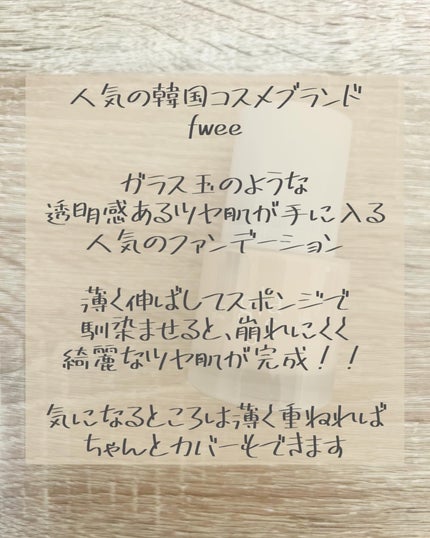 人気の韓国コスメブランド
fwee
ガラス玉のような
透明感あるツヤ肌が手に入る
人気のファンデーション
薄く伸ばしてスポンジで
馴染ませると、崩れにくく
綺麗なツヤ肌が完成！！
気になるところは薄く重ねれば
ちゃんとカバーもできます